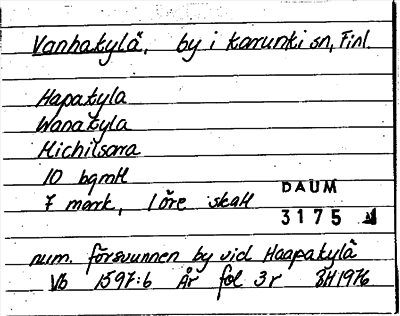 Vanhakylä, by i Karunki sn, Finl.
Hapakyla
Wanakyla
Michilsara
10 bgmtl
7 mark, 1 öre skatt
DAUM
3175
num. försvunnen by vid Haapakylä
Vb 1597:6 År fol 3r BH 1976